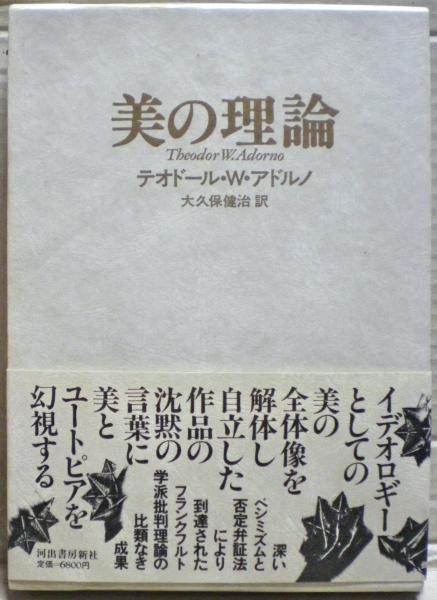 美の理論
Theodor W. Adorno
テオドール・W・アドルノ
大久保健治 訳
イデオロギー
としての
美の
全体像を
解体し
自立した
作品の
沈黙の
言葉に
美と
ユートピアを
幻視する
深い
ペシミズムと
否定弁証法
により
到達された
フランクフルト
学派批判理論の
比類なき
成果
河出書房新社
定価=6800円